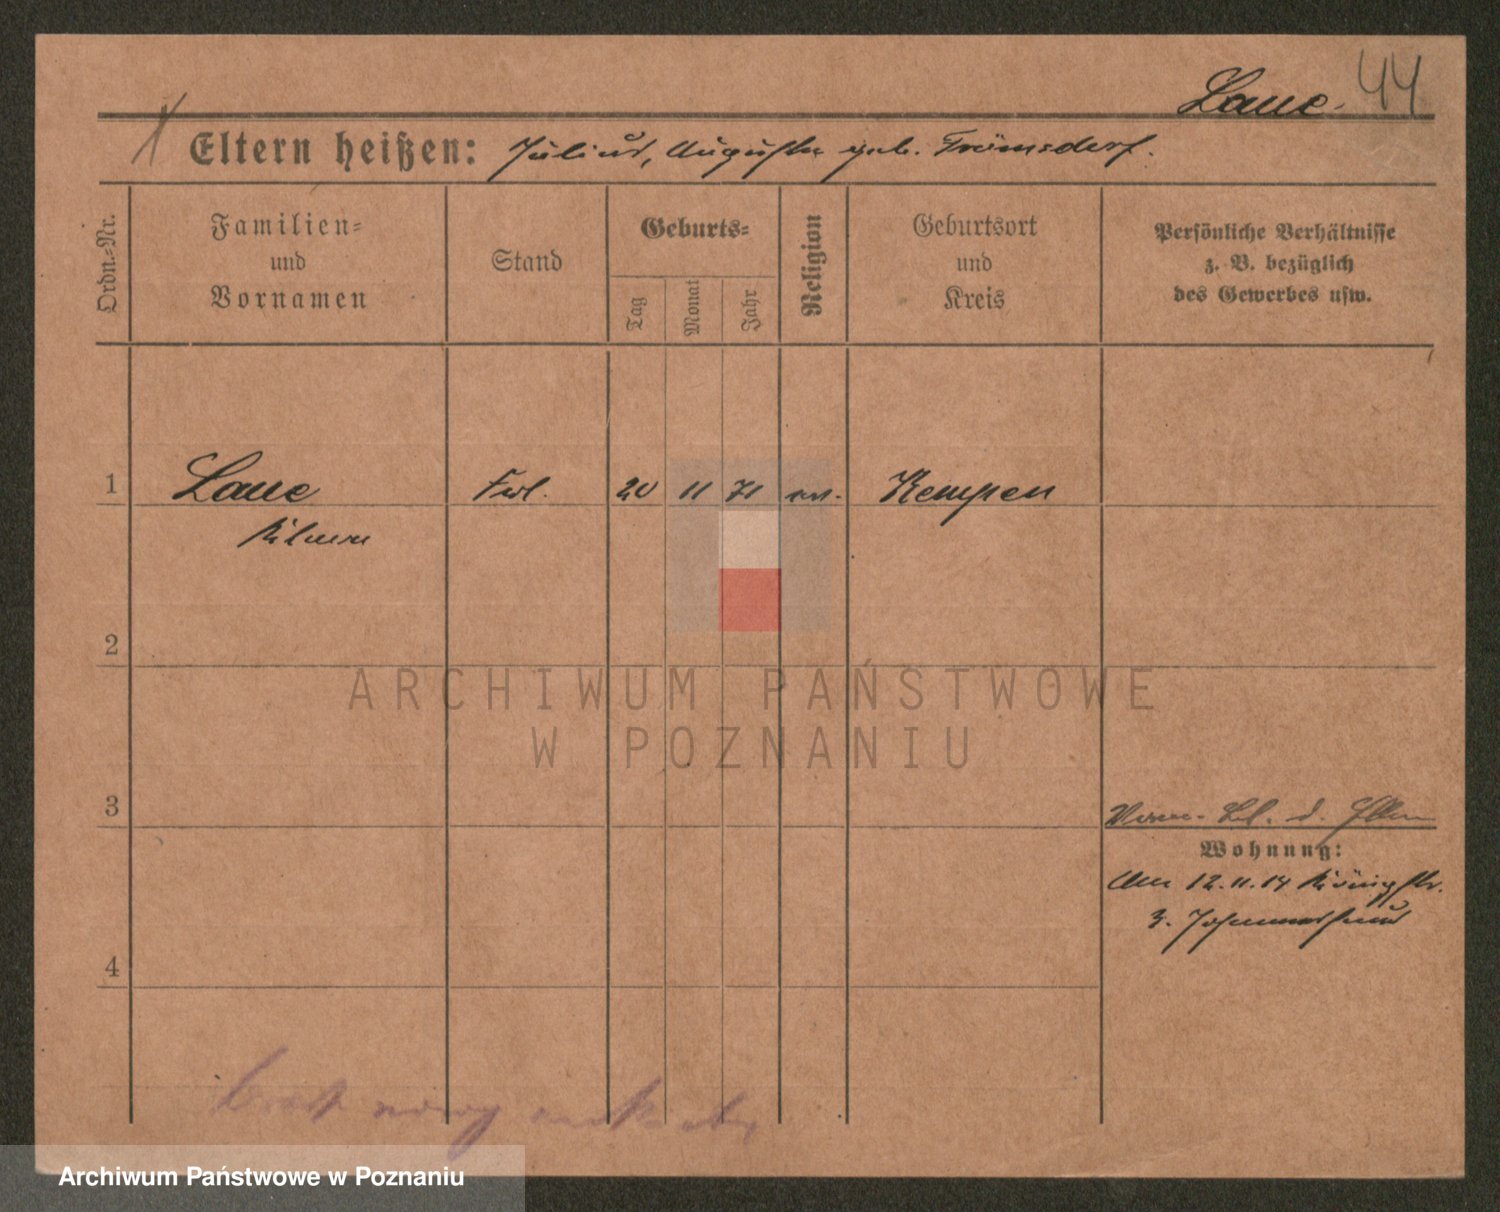 Laue. 44
Eltern heißen: Julius, Auguste geb. Frömsdorf.
Ordn.-Nr.
Familien-
und
Vornamen
Stand
Geburts-
Tag
Monat
Jahr
Religion
Geburtsort
und
Kreis
Persönliche Verhältnisse
z. B. bezüglich
des Gewerbes usw.
1 Laue Frl. 20 11 71 ev. Kempen
2
ARCHIWUM PAŃSTWOWE
W POZNANIU
3
Wohnung:
Am 12.11.14 Königstr.
3. Johanneshaus
4
Archiwum Państwowe w Poznaniu